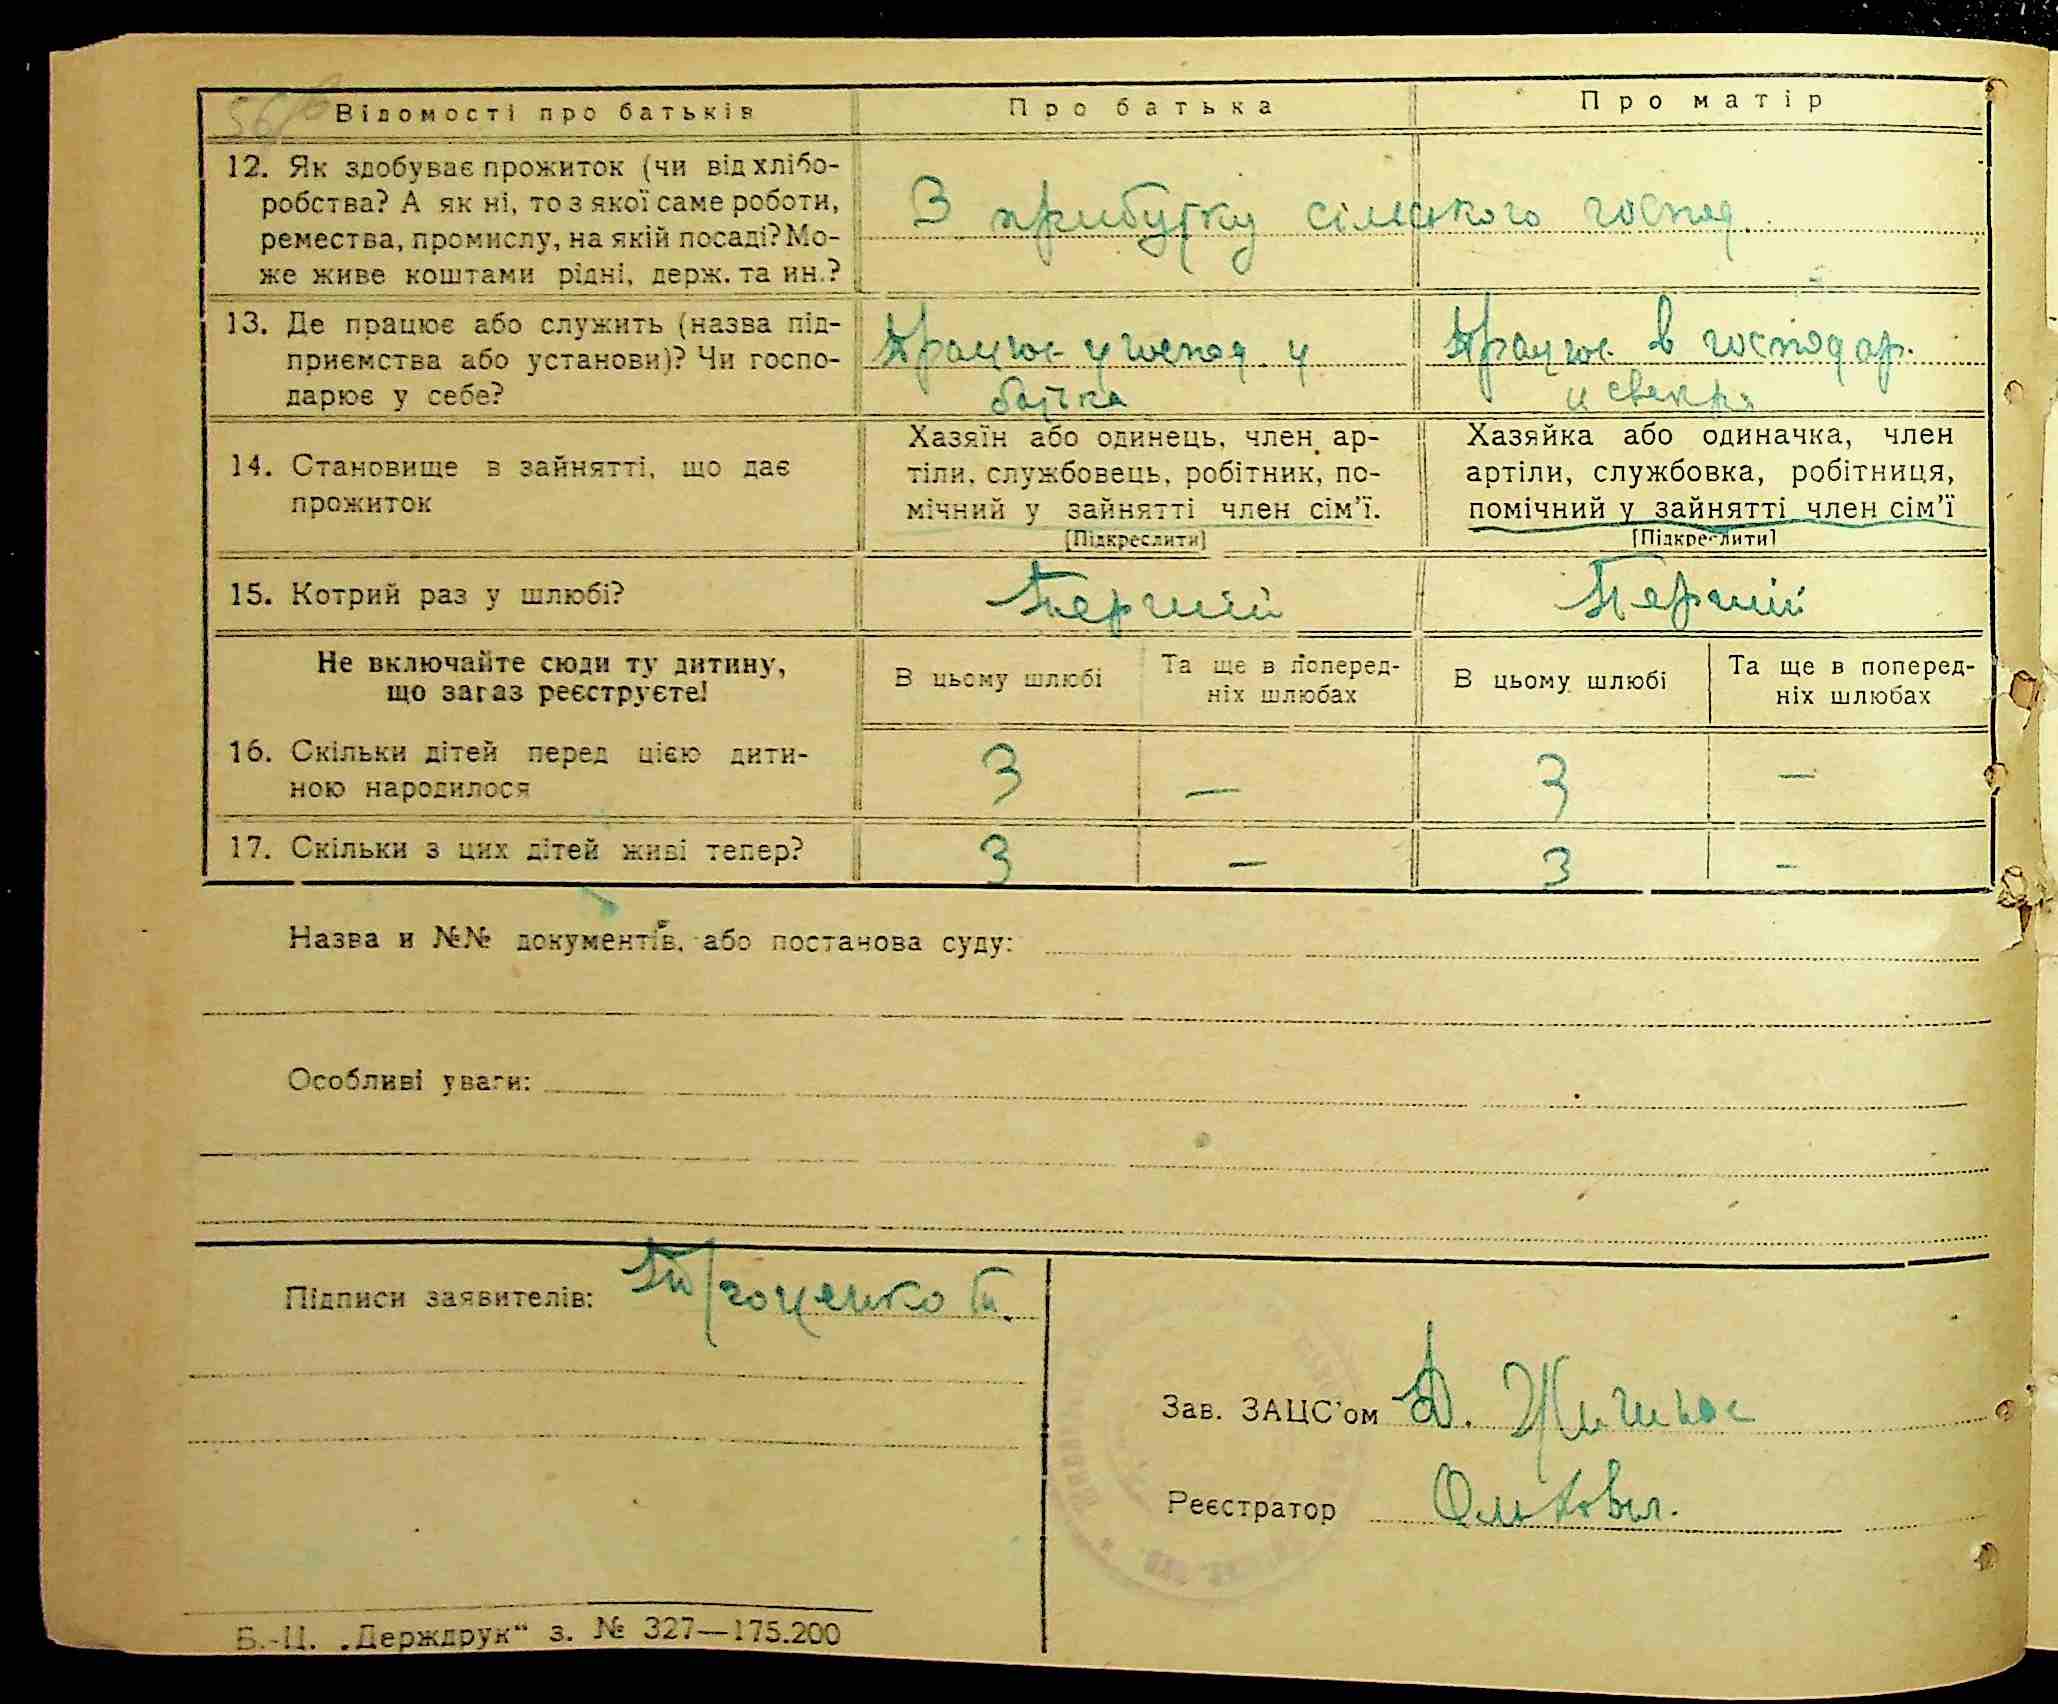 Відомості про батьків
Про батька
Про матір
12. Як здобуває прожиток (чи від хлібо-
робства? А як ні, то з якої саме роботи,
ремества, промислу, на якій посаді? Мо-
же живе коштами рідні, держ. та ин.?
З прибутку сільського господ.
13. Де працює або служить (назва під-
приємства або установи)? Чи госпо-
дарює у себе?
Працює у господ. у
батька
Працює в господар.
у свекра
14. Становище в зайнятті, що дає
прожиток
Хазяїн або одинець, член ар-
тіли, службовець, робітник, по-
мічний у зайнятті член сім’ї.
[Підкреслити]
Хазяйка або одиначка, член
артіли, службовка, робітниця,
помічний у зайнятті член сім’ї
[Підкреслити]
15. Котрий раз у шлюбі?
Перший
Перший
Не включайте сюди ту дитину,
що зараз реєструєте!
В цьому шлюбі
Та ще в поперед-
ніх шлюбах
В цьому шлюбі
Та ще в поперед-
ніх шлюбах
16. Скільки дітей перед цією дити-
ною народилося
3 — 3 —
17. Скільки з цих дітей живі тепер?
3 — 3 -
Назва и №№ документів, або постанова суду:
Особливі уваги:
Підписи заявителів:
Зав. ЗАЦС’ом
Реєстратор
Б.-Ц. „Держдрук“ з. № 327—175.200